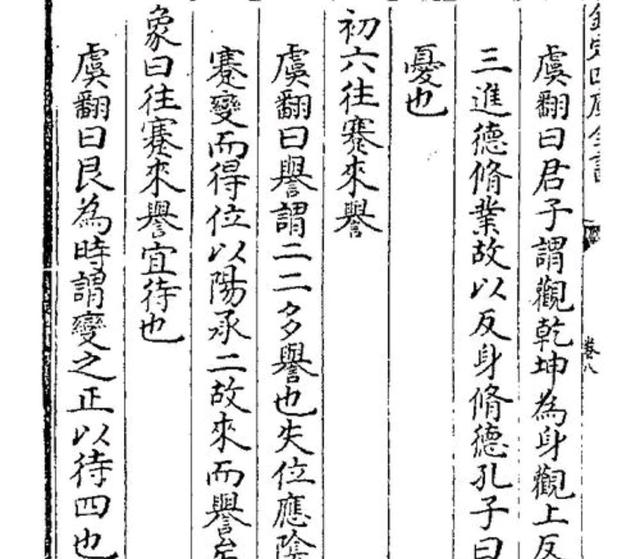 欽定四庫全書
卷八
虞翻曰君子謂觀乾坤為身觀上反
三進德脩業故以反身脩德孔子曰
憂也
初六往蹇來譽
虞翻曰譽謂二二多譽也失位應陰
蹇變而得位以陽承二故來而譽矣
象曰往蹇來譽宜待也
虞翻曰艮為時謂變之正以待四也